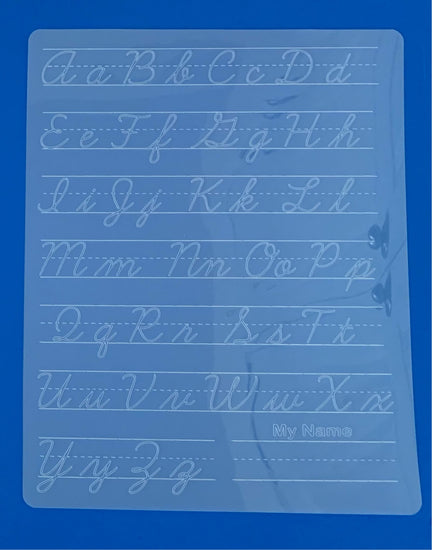 A a B b C c D d
E e F f G g H h
I i J j K k L l
M m N n O o P p
Q q R r S s T t
U u V v W w X x
My Name
Y y Z z